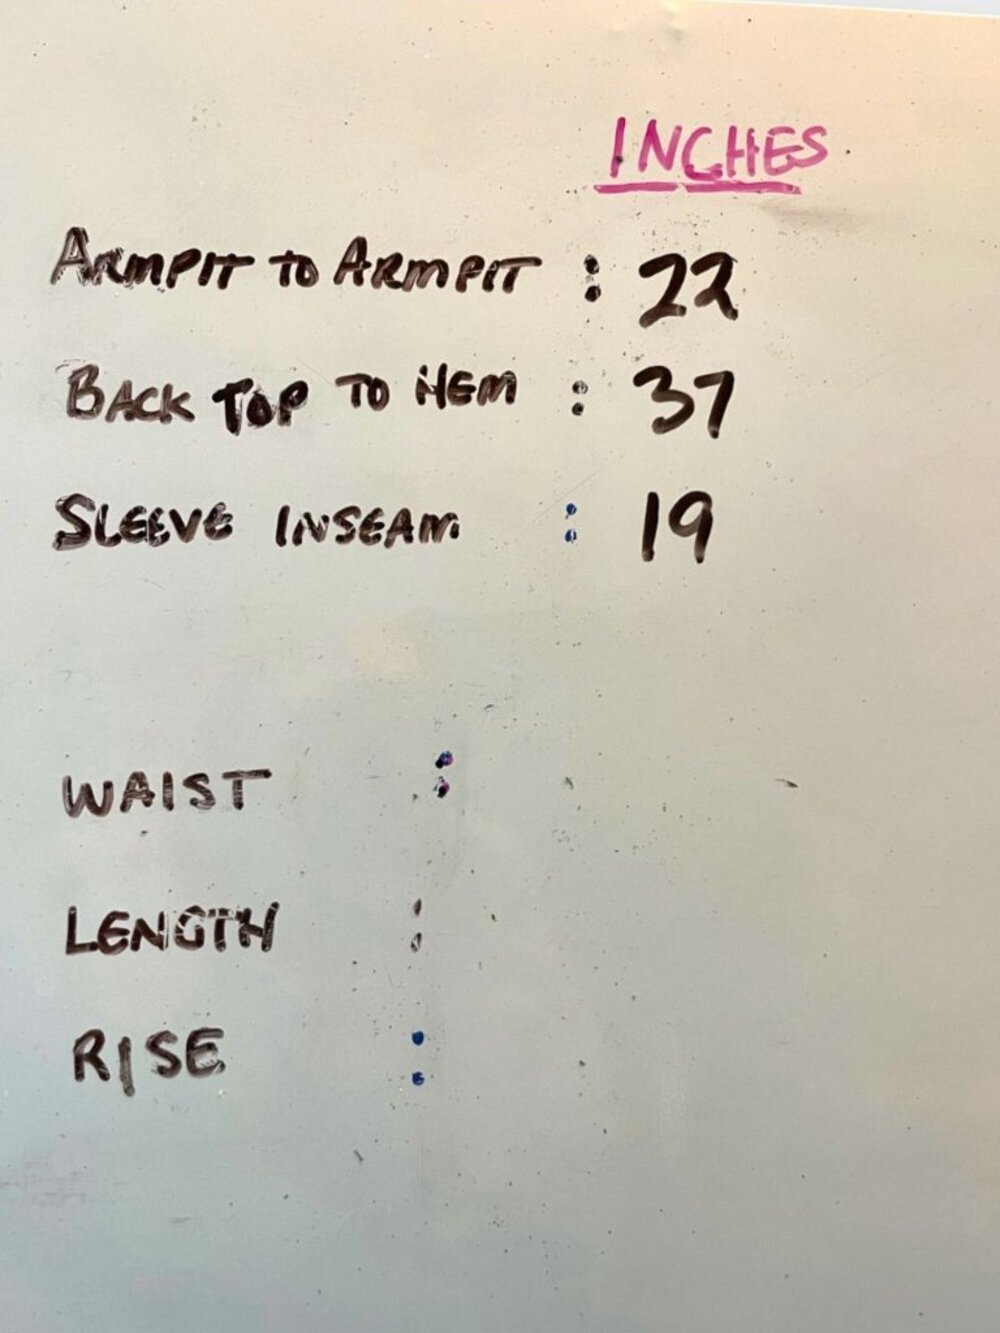 INCHES
ARMPIT TO ARMPIT : 22
BACK TOP TO HEM : 37
SLEEVE INSEAM : 19
WAIST :
LENGTH :
RISE :